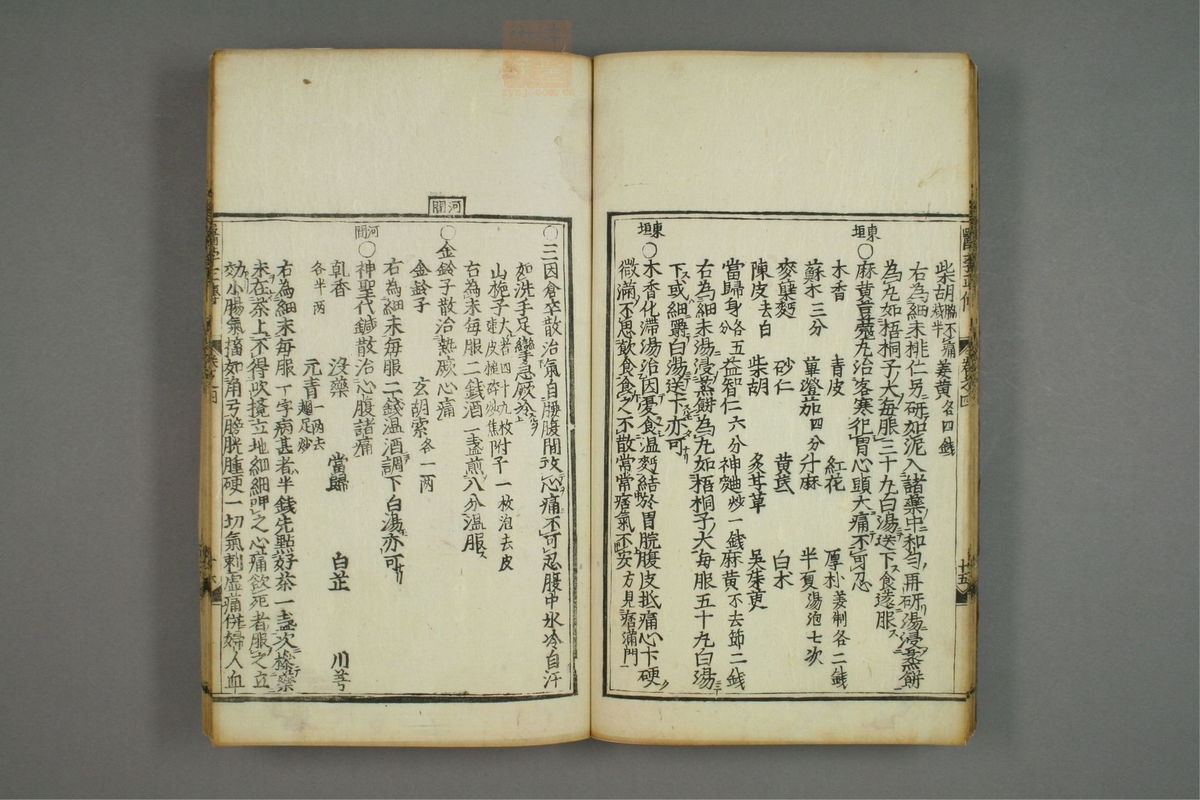 柴胡 腦不痛減半 姜黄各四錢
右為細末桃仁另研如泥入諸藥中和勻再研湯浸蒸餅
為丸如梧桐子大每服三十丸白湯送下食遠服
東垣
○麻黄荳蔲丸治客寒犯胃心頭大痛不可忍
木香 青皮 紅花 厚朴姜制各二錢
蘇木三分 蓽澄茄四分 升麻 半夏湯泡七次
麥糵麪 砂仁 黄芪 白木
陳皮去白 柴胡 炙甘草 吳茱萸
當歸身各五分 益智仁六分 神麯炒一錢 麻黄不去節二錢
右為細末湯浸蒸餅為丸如梧桐子大每服五十丸白湯
下或細嚼白湯送下亦可
東垣
○木香化滯湯治因憂食温麪結於胃脘腹皮抵痛心下硬
微滿不思飲食食之不散常常痞氣不安方見痞滿門
○三因倉卒散治氣自腰腹間攻心痛不可忍腹中氷冷自汗
如洗手足攣急厥冷
山梔子大者四十九枚連皮捶碎炒焦 附子一枚泡去皮
右為末每服二錢酒一盞煎八分温服
河間
○金鈴子散治熱厥心痛
金鈴子 玄胡索各一兩
右為細末每服二錢温酒調下白湯亦可
河間
○神聖代鍼散治心腹諸痛
乳香 沒藥 當歸 白芷 川芎
各半兩 元青一兩去翅足炒
右為細末每服一字病甚者半錢先點好茶一盞次摻藥
末在茶上不得吹攪立地細細呷之心痛欲死者服之立
効小腸氣搐如角弓膀胱腫硬一切氣刺虛痛併婦人血